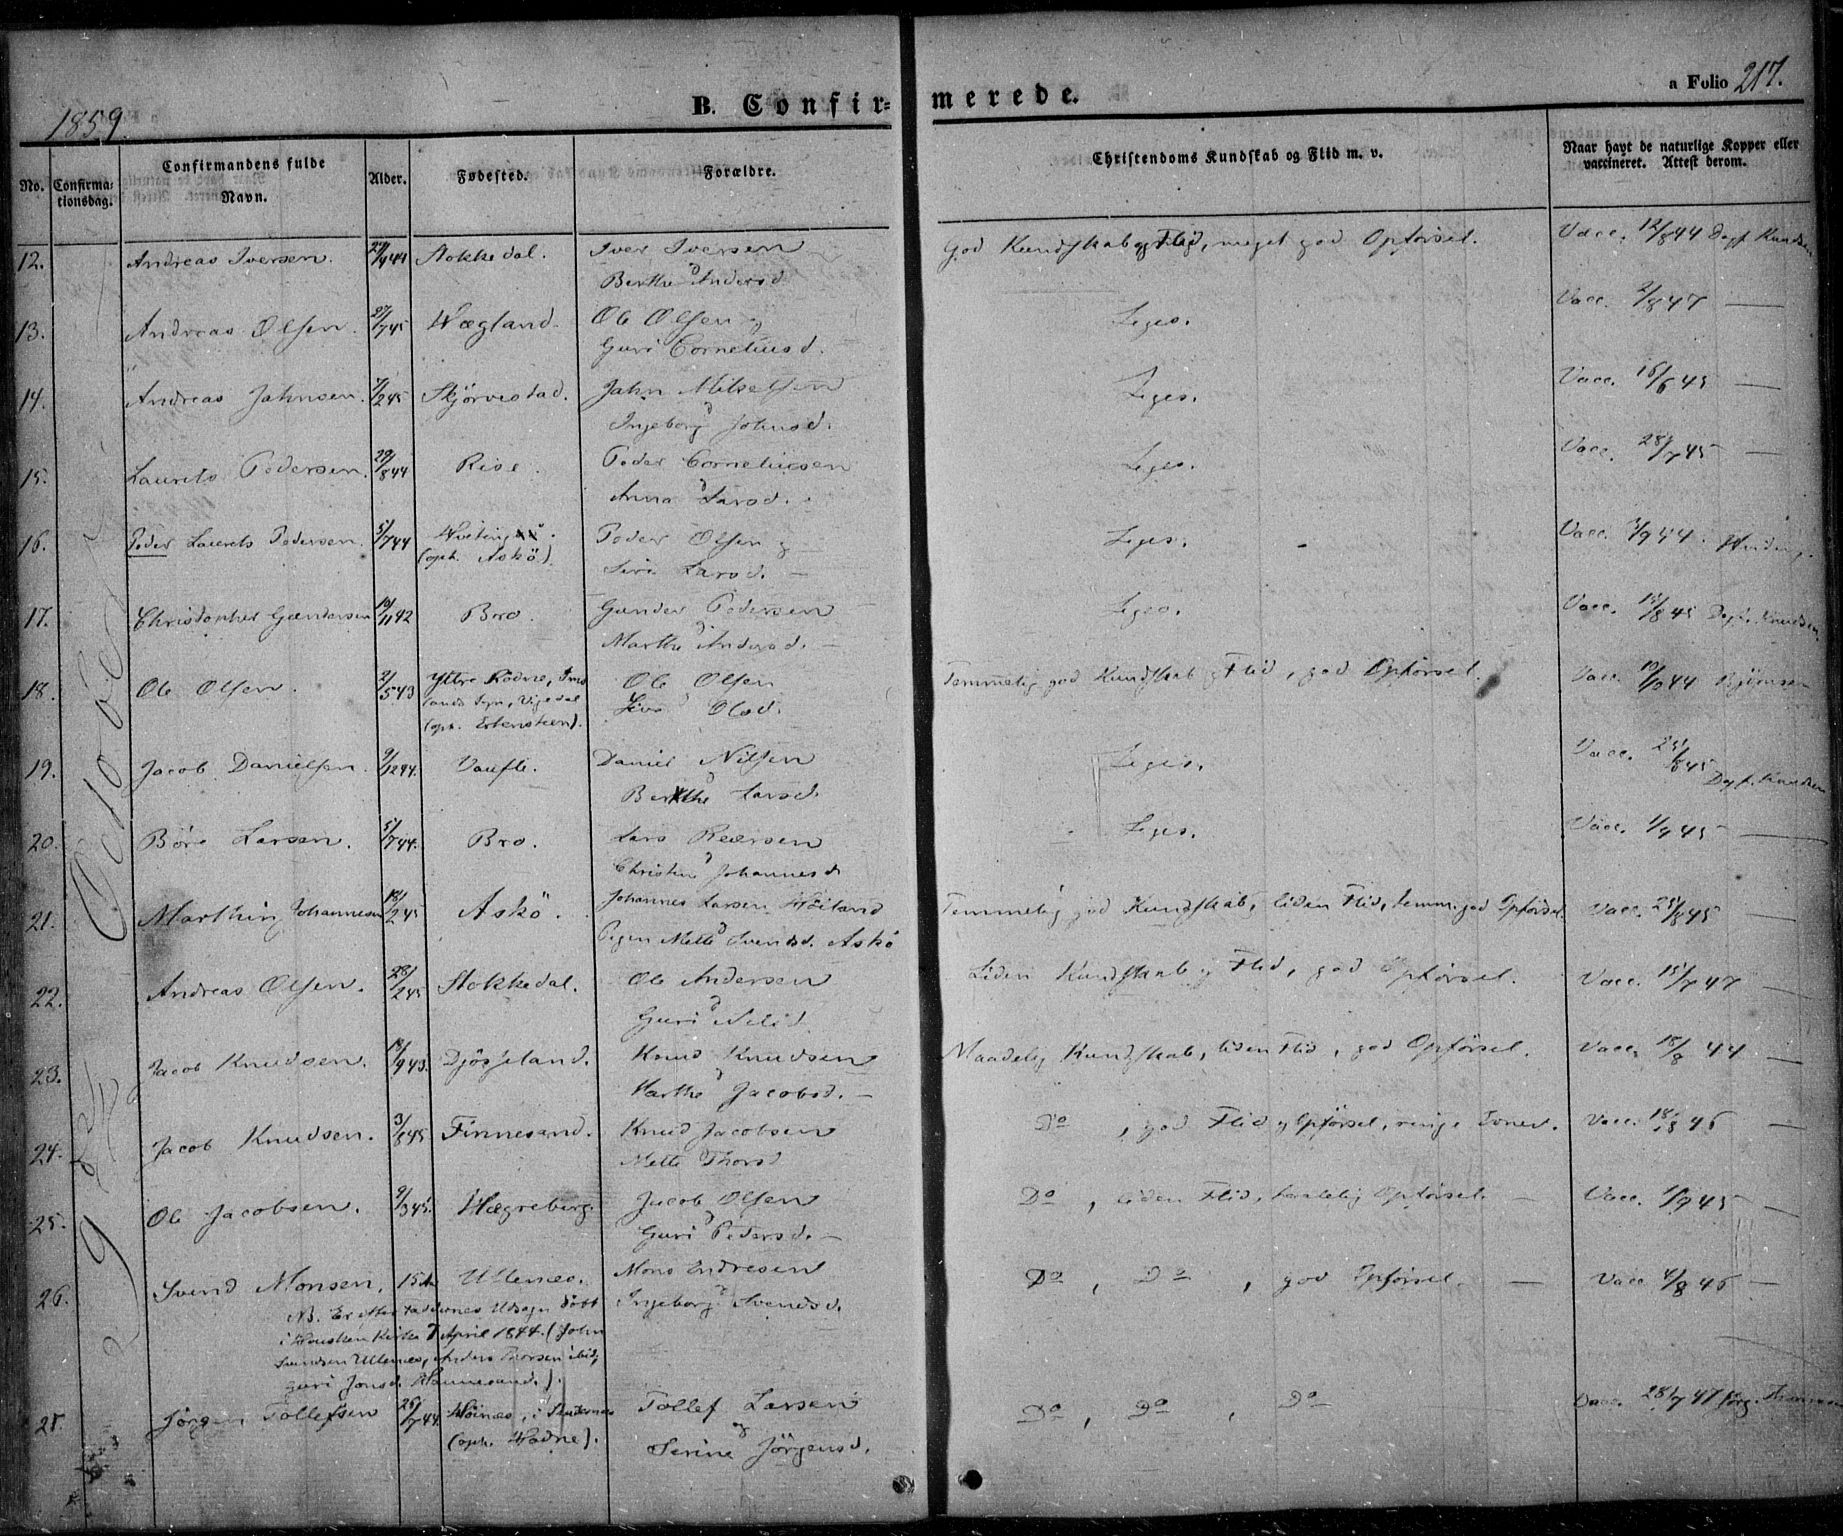 1859.
B. Confirmerede.
a Folio 217.
No.
Confirmationsdag.
Confirmandens fulde Navn.
Alder.
Fødested.
Forældre.
Christendoms Kundskab og Flid m. v.
Naar havt de naturlige Kopper eller vaccineret. Attest derom.
October
12. Andreas Iversen. Stokkedal. Iver Iversen God Kundskab og Flid, meget god Opførsel. Vacc. 12/8 44 Knudsen
Berthe Andersd
13. Andreas Olsen. 27/7 45 Wægland. Ole Olsen og Liges. Vacc. 2/8 47 —
Guri Corneliusd.
14. Andreas Jahnsen. 7/2 45 Skjörvestad. Jahn Mikelsen Liges. Vacc. 16/6 45 —
Ingeborg Johnsd.
15. Laurits Pedersen. 29/8 44 Rise. Peder Corneliusen Liges. Vacc. 28/7 45 —
Anna Larsd.
16. Peder Laurits Pedersen. 5/7 44 Peder Olsen og Liges. Vacc. 3/9 44.
(oph. Askö). Siri Larsd. —
17. Christopher Gundersen 10/11 42 Bro. Gunder Pedersen Liges. Vacc. 15/8 45 Knudsen
Marthe Andersd. —
18. Ole Olsen. 2/5 43 Yttre Rodne, Ims Ole Olsen Temmelig god Kundskab og Flid, god Opførsel. Vacc. 10/9 44 Bjørnsen
lands Sogn, Vigedal Siva Olsd.
(oph. Erbensteen).
19. Jacob Danielsen. 9/12 44. Vaufle. Daniel Nilsen Liges. Vacc. 25/8 45
Berthe Larsd. Knudsen
20. Böre Larsen. 5/7 44. Bro. Lars Reersen Liges. Vacc. 1/9 45 —
Christine Johannesd
21. Marthin Johannesen 18/2 45 Askö. Johannes Larsen Temmelig god Kundskab, liden Flid, temm. god Opførsel. Vacc. 25/8 45 —
Pigen Mette Svendsd. Askö
22. Andreas Olsen. 28/2 45 Stokkedal. Ole Andersen Liden Kundskab og Flid, god Opførsel. Vacc. 15/7 47 —
Guri Nelsd.
23. Jacob Knudsen. 18/9 43. Knud Knudsen Maadelig Kundskab, liden Flid, god Opførsel. Vacc. 18/8 44 —
Marthe Jacobsd. —
24. Jacob Knudsen. 3/8 45 Finnesand. Knud Jacobsen Do, god Flid og Opførsel, ringe Evner. Vacc. 18/8 46 —
Mette Thorsd
25. Ole Jacobsen. 9/3 45. Hægreberg. Jacob Olsen Do, liden Flid, Opførsel. — Vacc. 1/9 45 —
Guri Pedersd. —
26. Svend Monsen. Ullenes. Mons Endresen Do, Do, god Opførsel. — Vacc. 4/8 46 —
NB. Er efter Faddernes Udsagn döbt Ingeborg Svendsd.
i Housken Kirke 7 April 1844. (John
Svendsen Ullenes, Anders Thorsen ibid,
Guri Jonsd. Hannesand.).
27. Jörgen Tollefsen 26/7 44 Höines, i Skudenes Tollef Larsen Do, Do, Do Vacc. 28/7 47
(oph. Hodne). Serine Jörgensd.